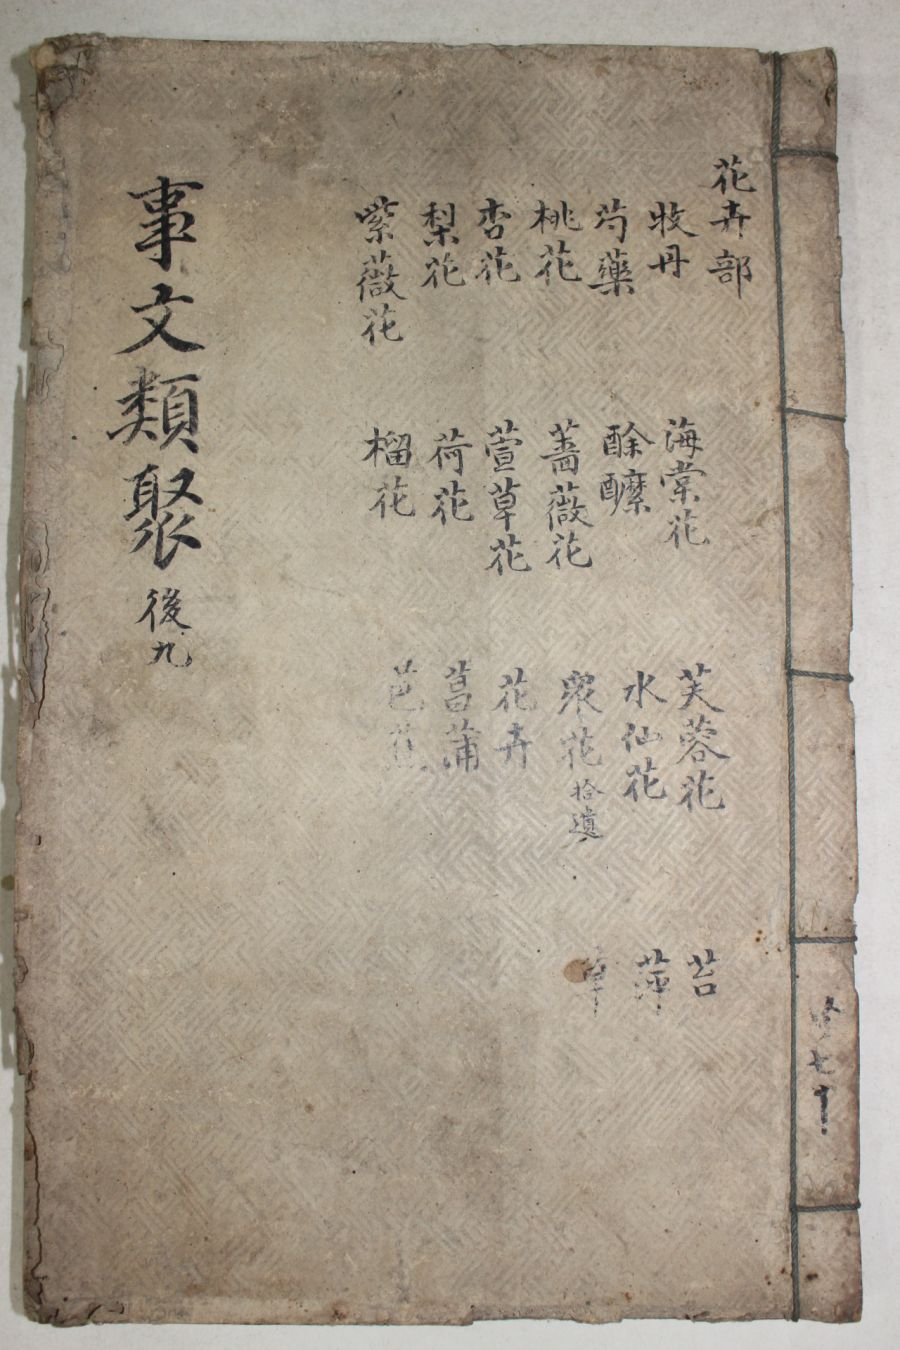 花卉部
牧丹
芍藥
桃花
杏花
梨花
紫薇花
海棠花
酴醿
薔薇花
萱草花
荷花
榴花
芙蓉花
水仙花
衆花拾遺
花卉
菖蒲
芭蕉
苔
萍
草
事文類聚 後九
共七十